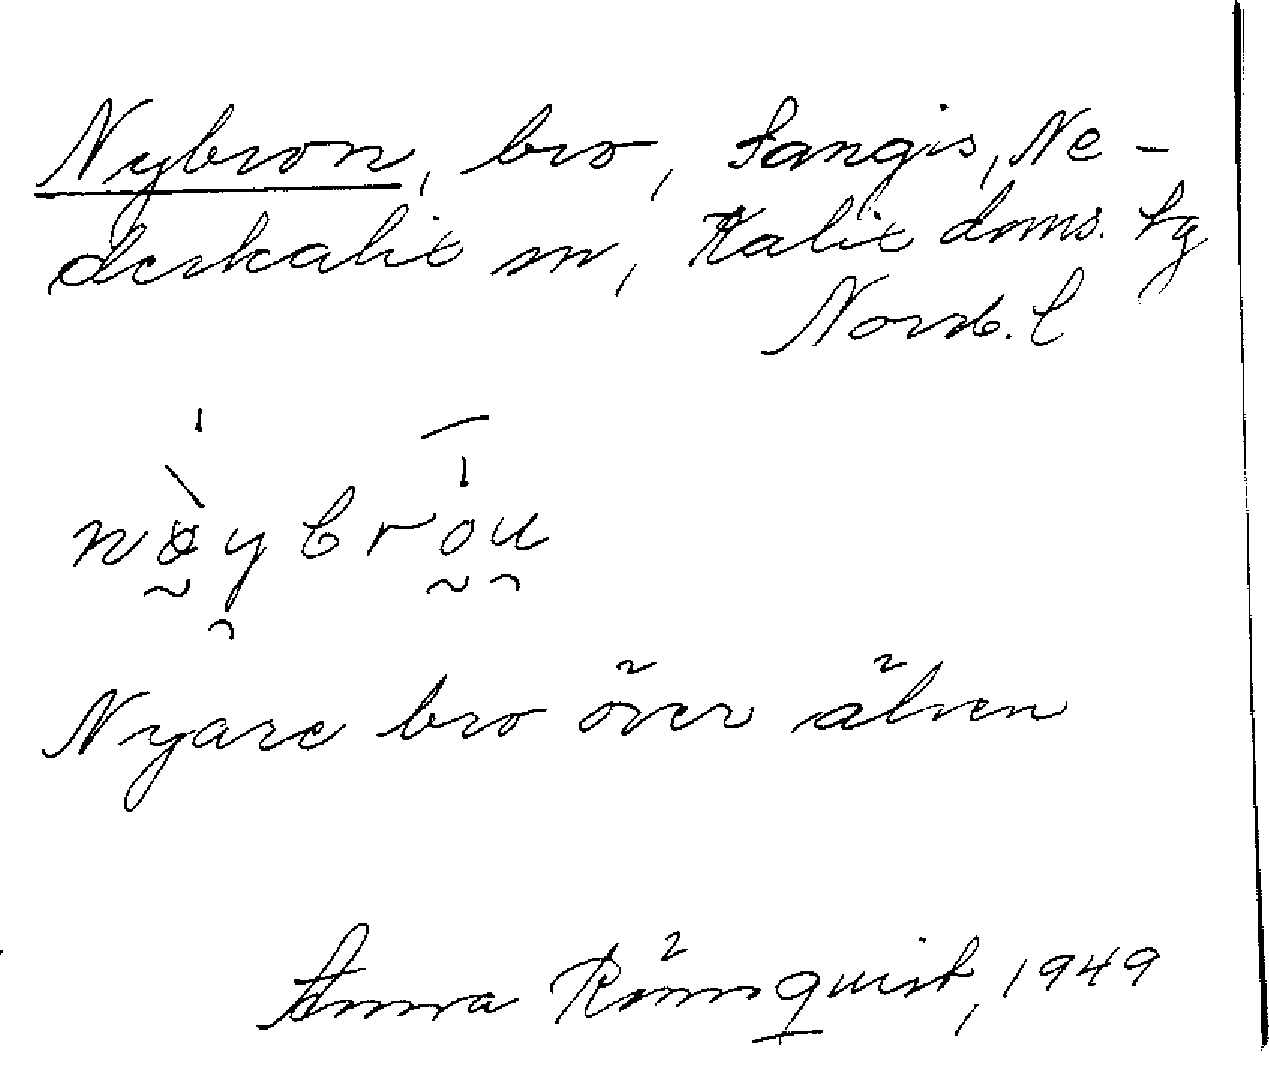 Nybron, bro, Sangis, Ne-
derkalix sn, Kalix doms. tg
Norrb. l
nøybròu
Nyare bro över älven
Anna Rönnquist, 1949